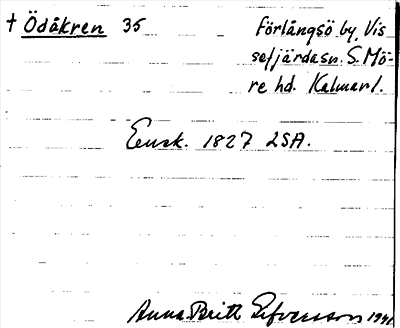 † Ödåkren 35 Förlångsö by, Vis
sefjärda sn. S. Mö-
re hd. Kalmar l.
Ensk. 1827 LSA.
Anna Britt Elfversson 1946